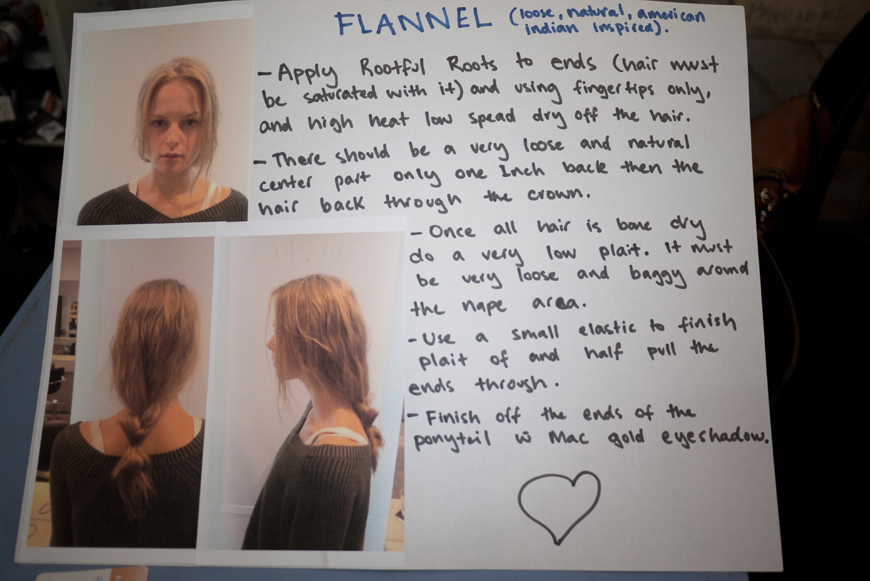 FLANNEL (loose, natural, american
indian inspired).
- Apply Rootful Roots to ends (hair must
be saturated with it) and using fingertips only,
and high heat low spead dry off the hair.
- There should be a very loose and natural
center part only one Inch back then the
hair back through the crown.
- Once all hair is bone dry
do a very low plait. It must
be very loose and baggy around
the nape area.
- Use a small elastic to finish
plait of and half pull the
ends through.
- Finish off the ends of the
ponytail w Mac gold eyeshadow.